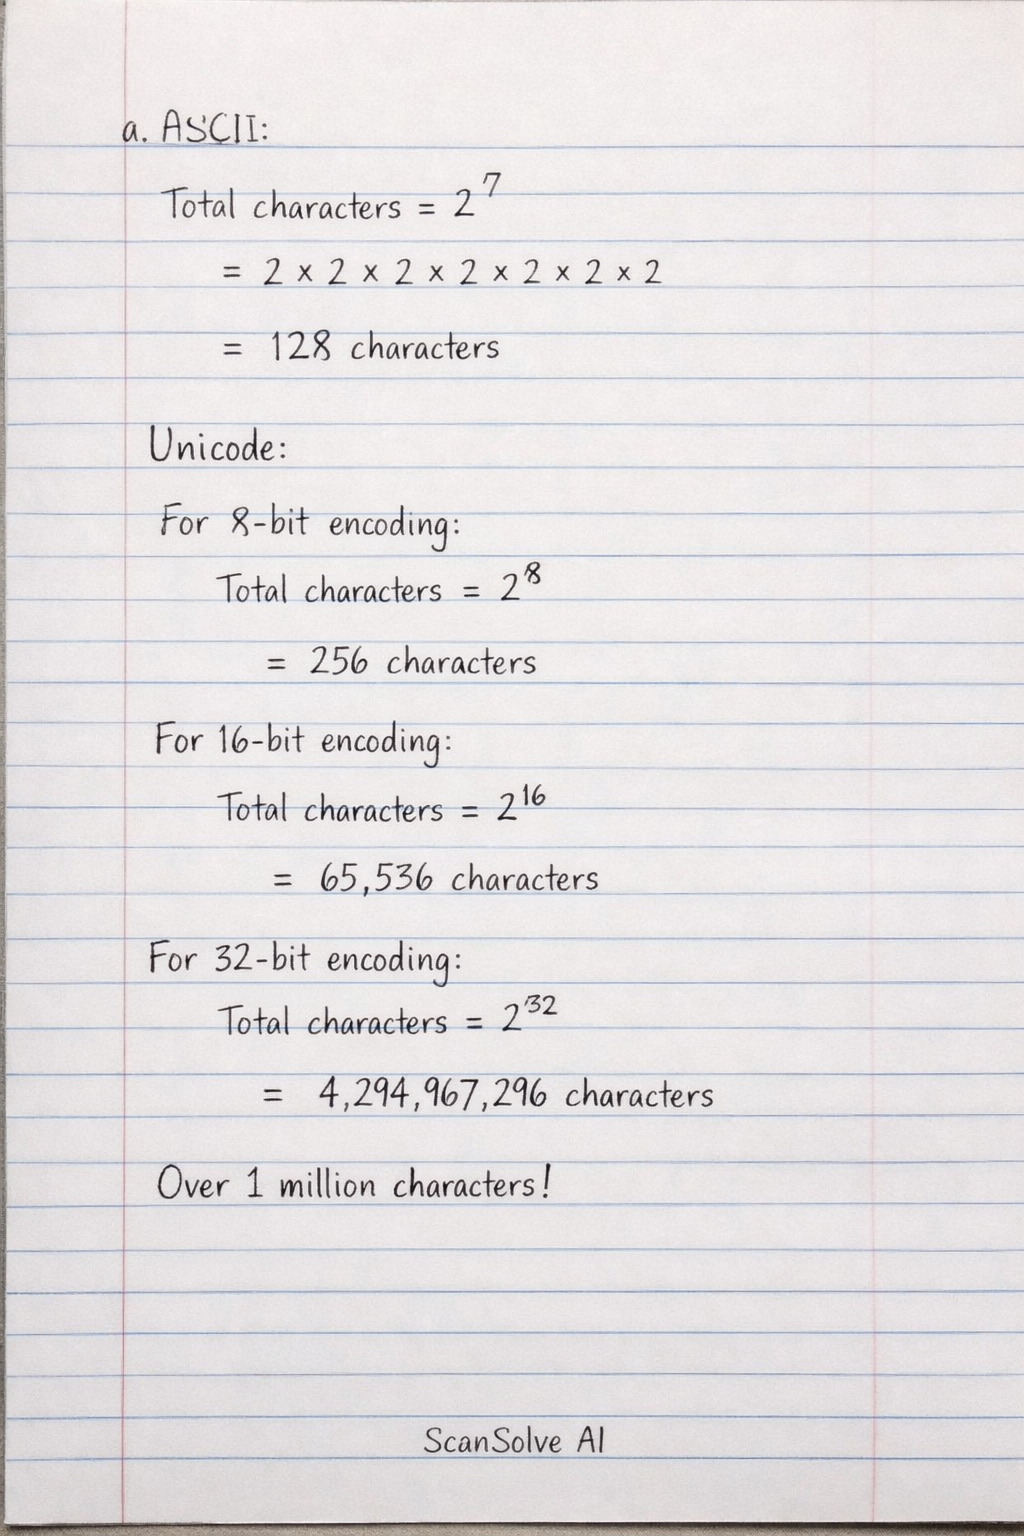 a. ASCII:
Total characters = 2⁷
= 2 x 2 x 2 x 2 x 2 x 2 x 2
= 128 characters
Unicode:
For 8-bit encoding:
Total characters = 2⁸
= 256 characters
For 16-bit encoding:
Total characters = 2¹⁶
= 65,536 characters
For 32-bit encoding:
Total characters = 2³²
= 4,294,967,296 characters
Over 1 million characters!
ScanSolve AI